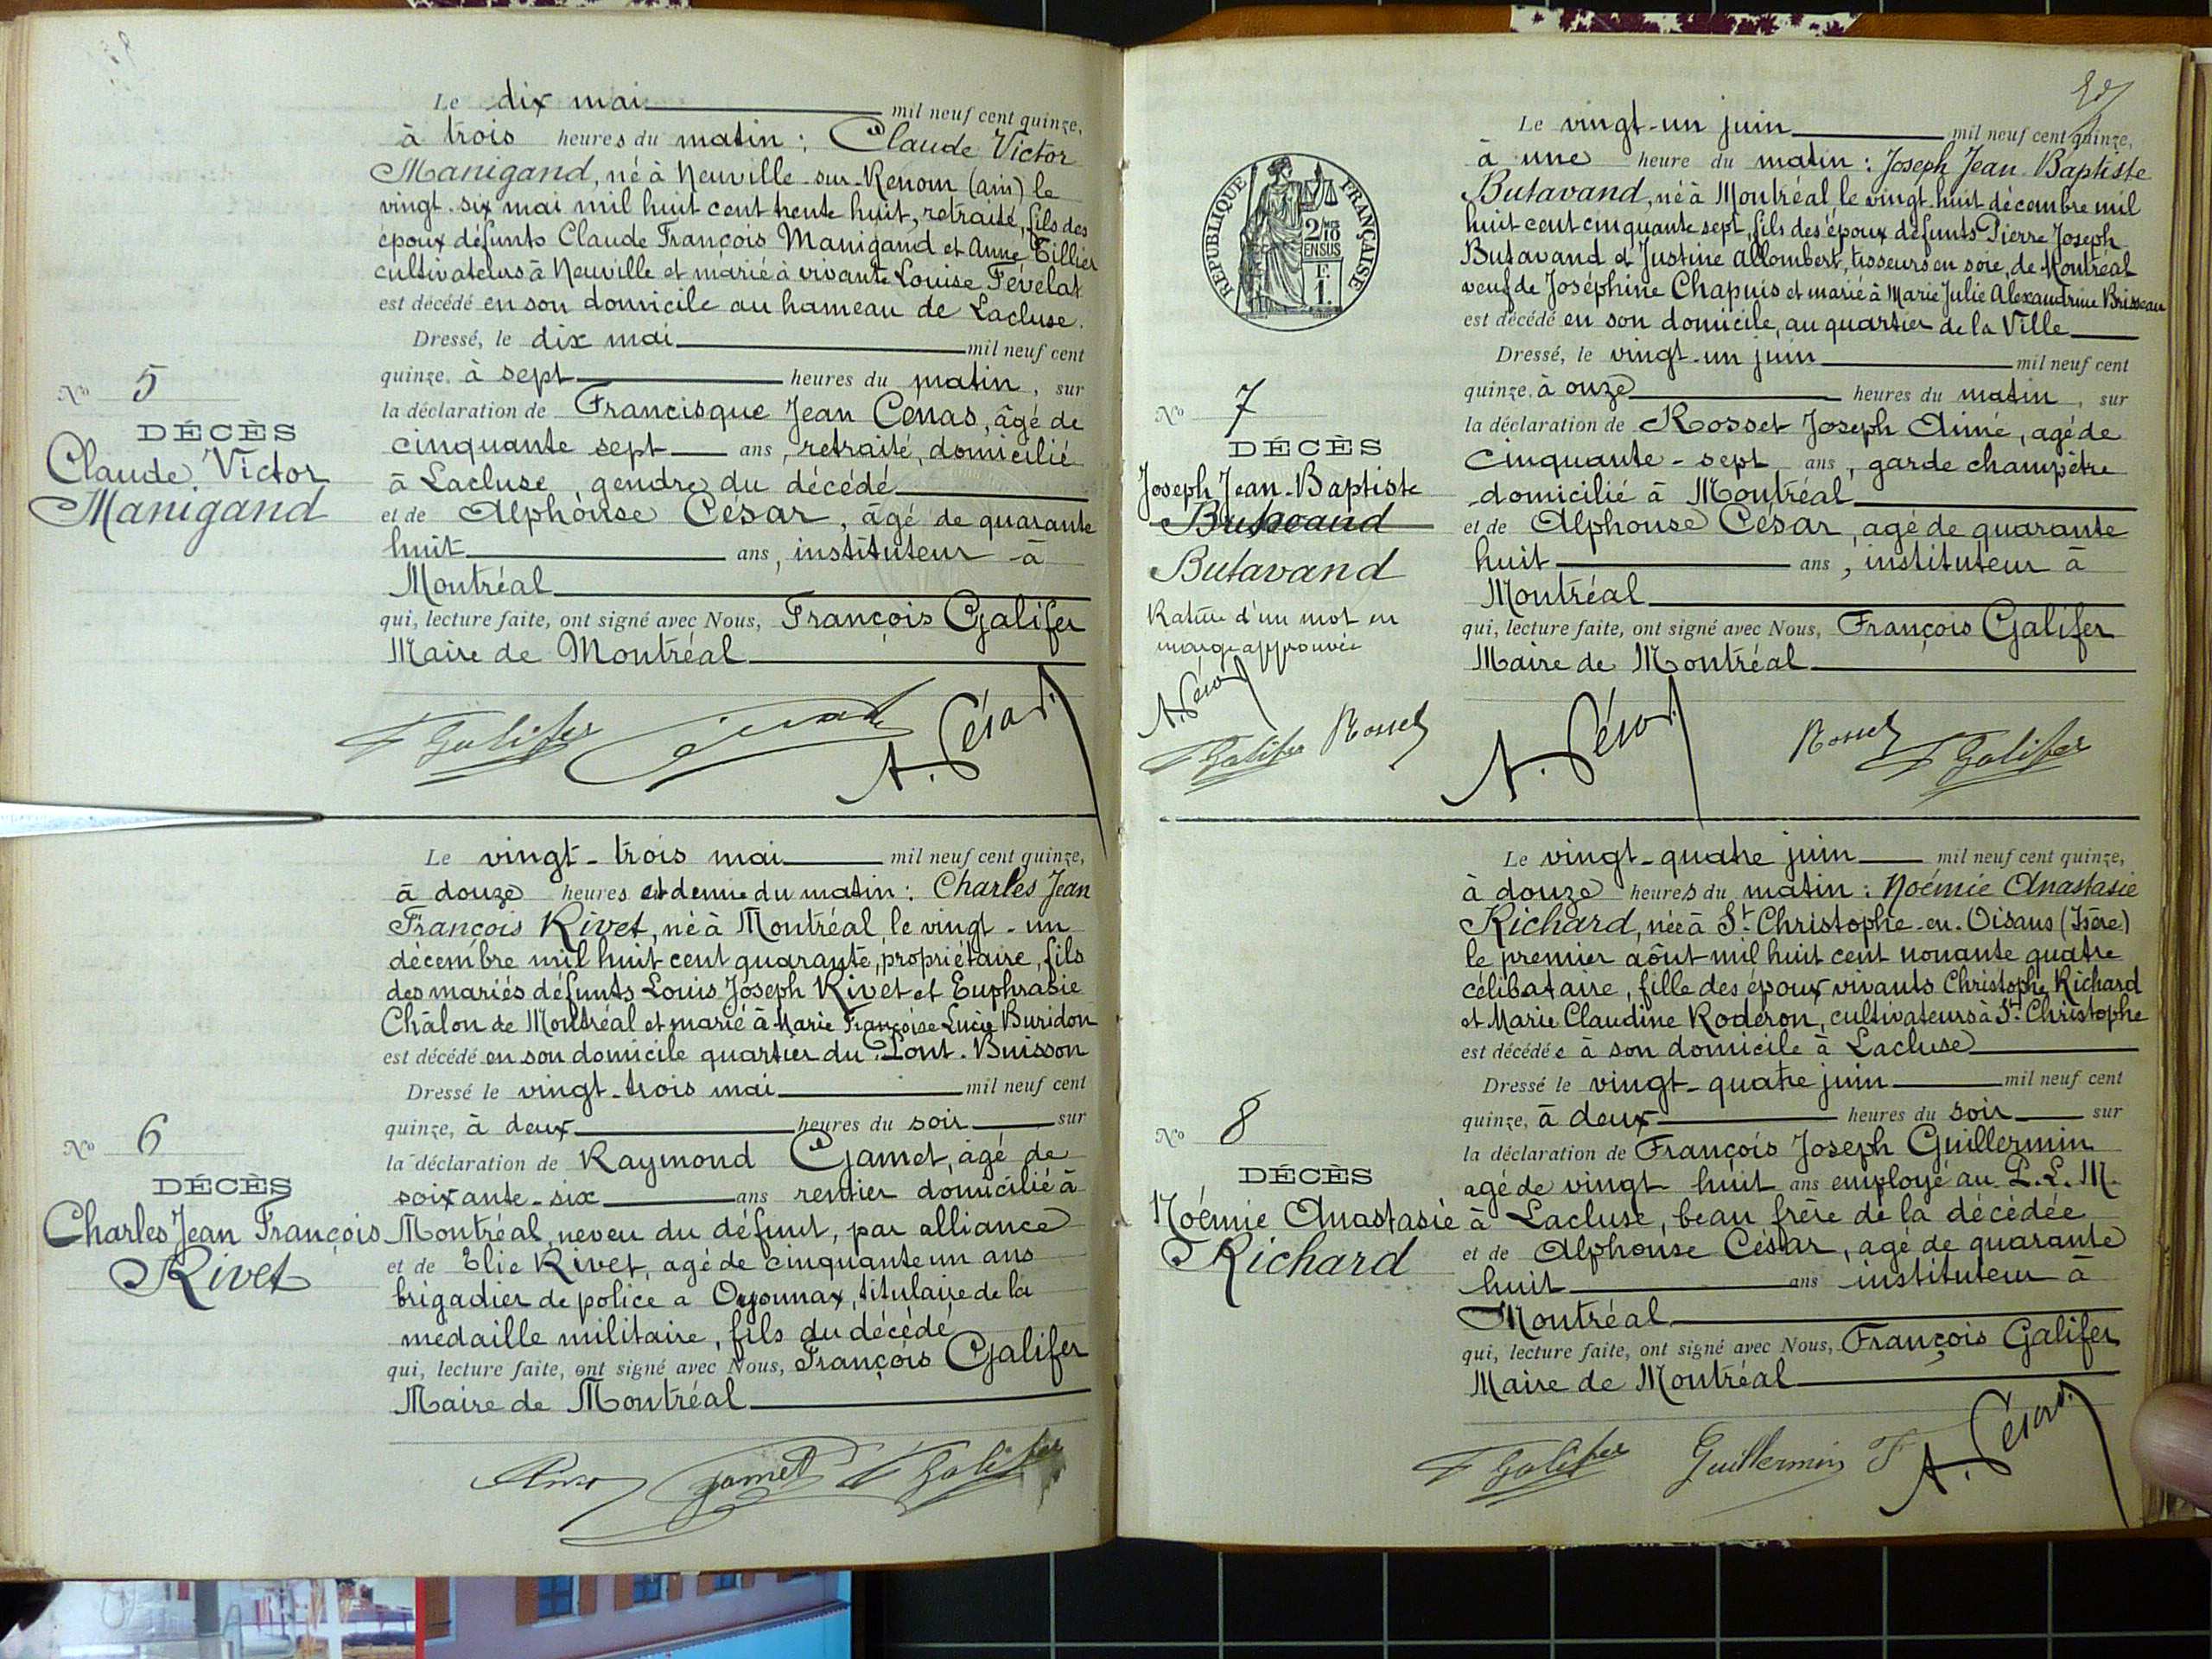 Le dix mai mil neuf cent quinze,
à trois heures du matin : Claude Victor
Manigand, né à Neuville-sur-Renom (ain) le
vingt-six mai mil huit cent trente huit, retraité, fils des
époux défunts Claude François Manigand et Anne Tillier
cultivateurs à Neuville et marié à vivante Louise Févelat
est décédé en son domicile au hameau de Lacluse.
Dressé, le dix mai mil neuf cent
quinze, à sept heures du matin, sur
la déclaration de Francisque Jean Cénas, âgé de
cinquante sept ans, retraité, domicilié
à Lacluse, gendre du décédé
et de Alphonse César, âgé de quarante
huit ans, instituteur à
Montréal
qui, lecture faite, ont signé avec Nous, François Galifer
Maire de Montréal
No 5
DÉCÈS
Claude Victor
Manigand
F Galifer A. César
Le vingt-trois mai mil neuf cent quinze,
à douze heures et demie du matin : Charles Jean
François Rivet, né à Montréal le vingt-un
décembre mil huit cent quarante, propriétaire, fils
des mariés défunts Louis Joseph Rivet et Euphrasie
Châlon de Montréal et marié à Marie Françoise Lucie Buridon
est décédé en son domicile quartier du Pont-Buisson
Dressé le vingt-trois mai mil neuf cent
quinze, à deux heures du soir sur
la déclaration de Raymond Gamet, âgé de
soixante-six ans rentier domicilié à
Montréal, neveu du défunt, par alliance
et de Elie Rivet, agé de cinquante un ans
brigadier de police a Oyonnax, titulaire de la
medaille militaire, fils du décédé
qui, lecture faite, ont signé avec Nous, François Galifer
Maire de Montréal
No 6
DÉCÈS
Charles Jean François
Rivet
Gamet F Galifer
Le vingt-un juin mil neuf cent quinze,
à une heure du matin : Joseph Jean-Baptiste
Butavand, né à Montréal le vingt-huit décembre mil
huit cent cinquante sept, fils des époux défunts Pierre Joseph
Butavand et Justine Allombert, tisseurs en soie, de Montréal
veuf de Joséphine Chapuis et marié à Marie Julie Alexandrine Brisseau
est décédé en son domicile, au quartier de la Ville
Dressé, le vingt-un juin mil neuf cent
quinze, à onze heures du matin, sur
la déclaration de Rosset Joseph Aimé, agé de
cinquante-sept ans, garde champêtre
domicilié à Montréal
et de Alphonse César, agé de quarante
huit ans, instituteur à
Montréal
qui, lecture faite, ont signé avec Nous, François Galifer
Maire de Montréal
REPUBLIQUE FRANÇAISE
2/10
EN SUS
1 F.
No 7
DÉCÈS
Joseph Jean-Baptiste
Butavand
Rature d'un mot en
marge approuvée
A. César
F Galifer Rosset
A. César Rosset F Galifer
Le vingt-quatre juin mil neuf cent quinze,
à douze heures du matin : Noémie Anastasie
Richard, née à St Christophe-en-Oisans (Isère)
le premier août mil huit cent nonante quatre
célibataire, fille des époux vivants Christophe Richard
et Marie Claudine Roderon, cultivateurs à St Christophe
est décédée à son domicile à Lacluse
Dressé le vingt-quatre juin mil neuf cent
quinze, à deux heures du soir sur
la déclaration de François Joseph Guillermin
agé de vingt huit ans employé au P.L.M.
à Lacluse, beau frère de la décédée
et de Alphonse César, agé de quarante
huit ans instituteur à
Montréal
qui, lecture faite, ont signé avec Nous, François Galifer
Maire de Montréal
No 8
DÉCÈS
Noémie Anastasie
Richard
F Galifer Guillermin F A. César